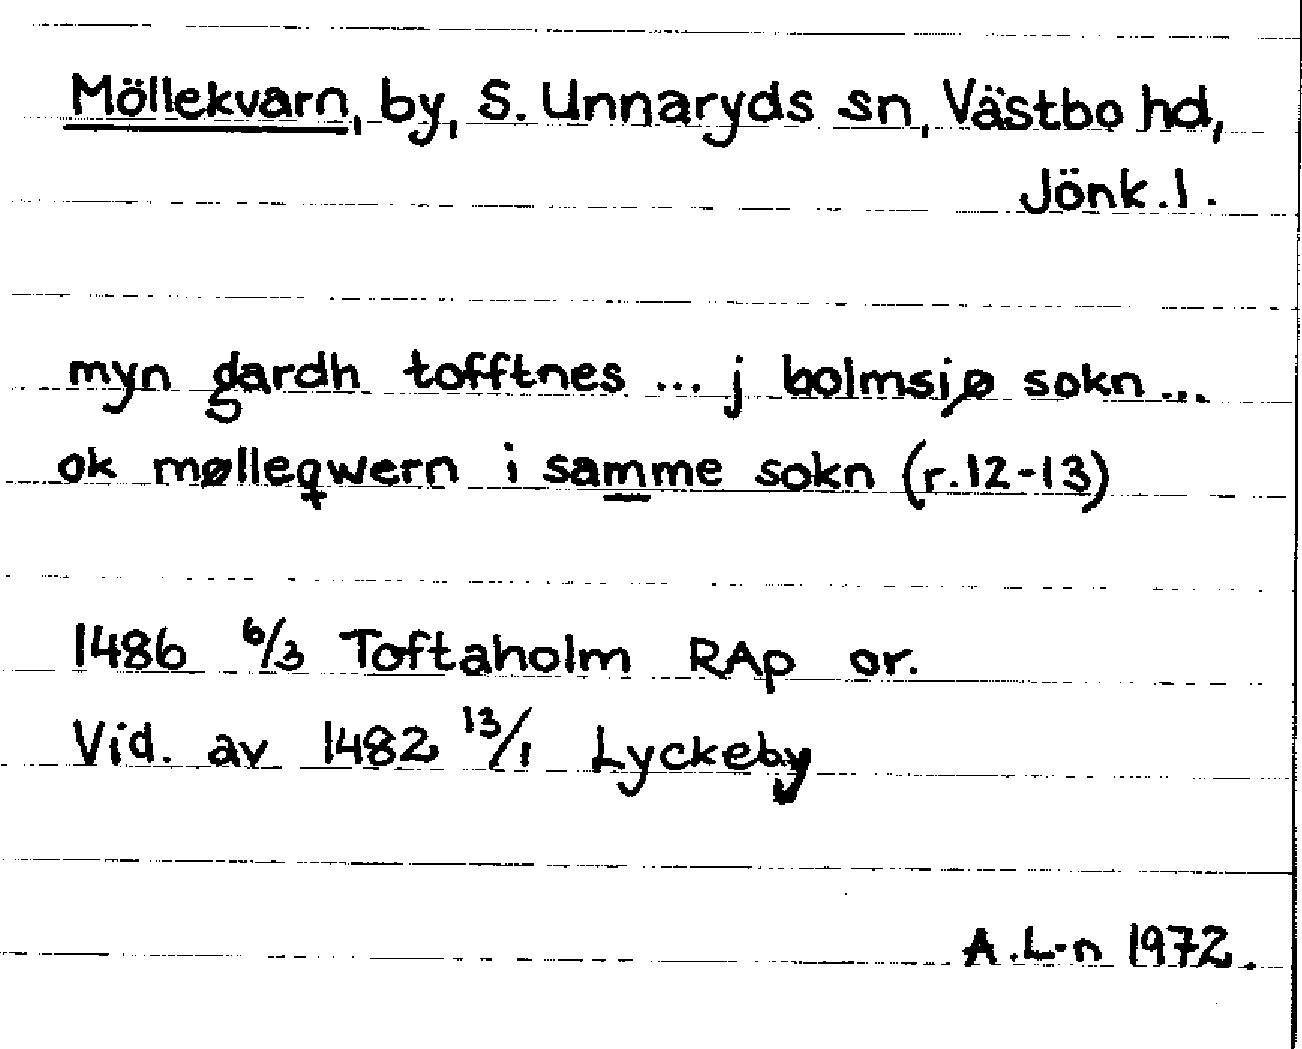 Möllekvarn, by, S. Unnaryds sn, Västbo hd,
Jönk. l.
myn gardh tofftnes ... j bolmsiø sokn ...
ok mølleqwern i samme sokn (r. 12-13)
1486 6/3 Toftaholm RAp or.
Vid. av 1482 13/1 Lyckeby
A. L-n 1972.